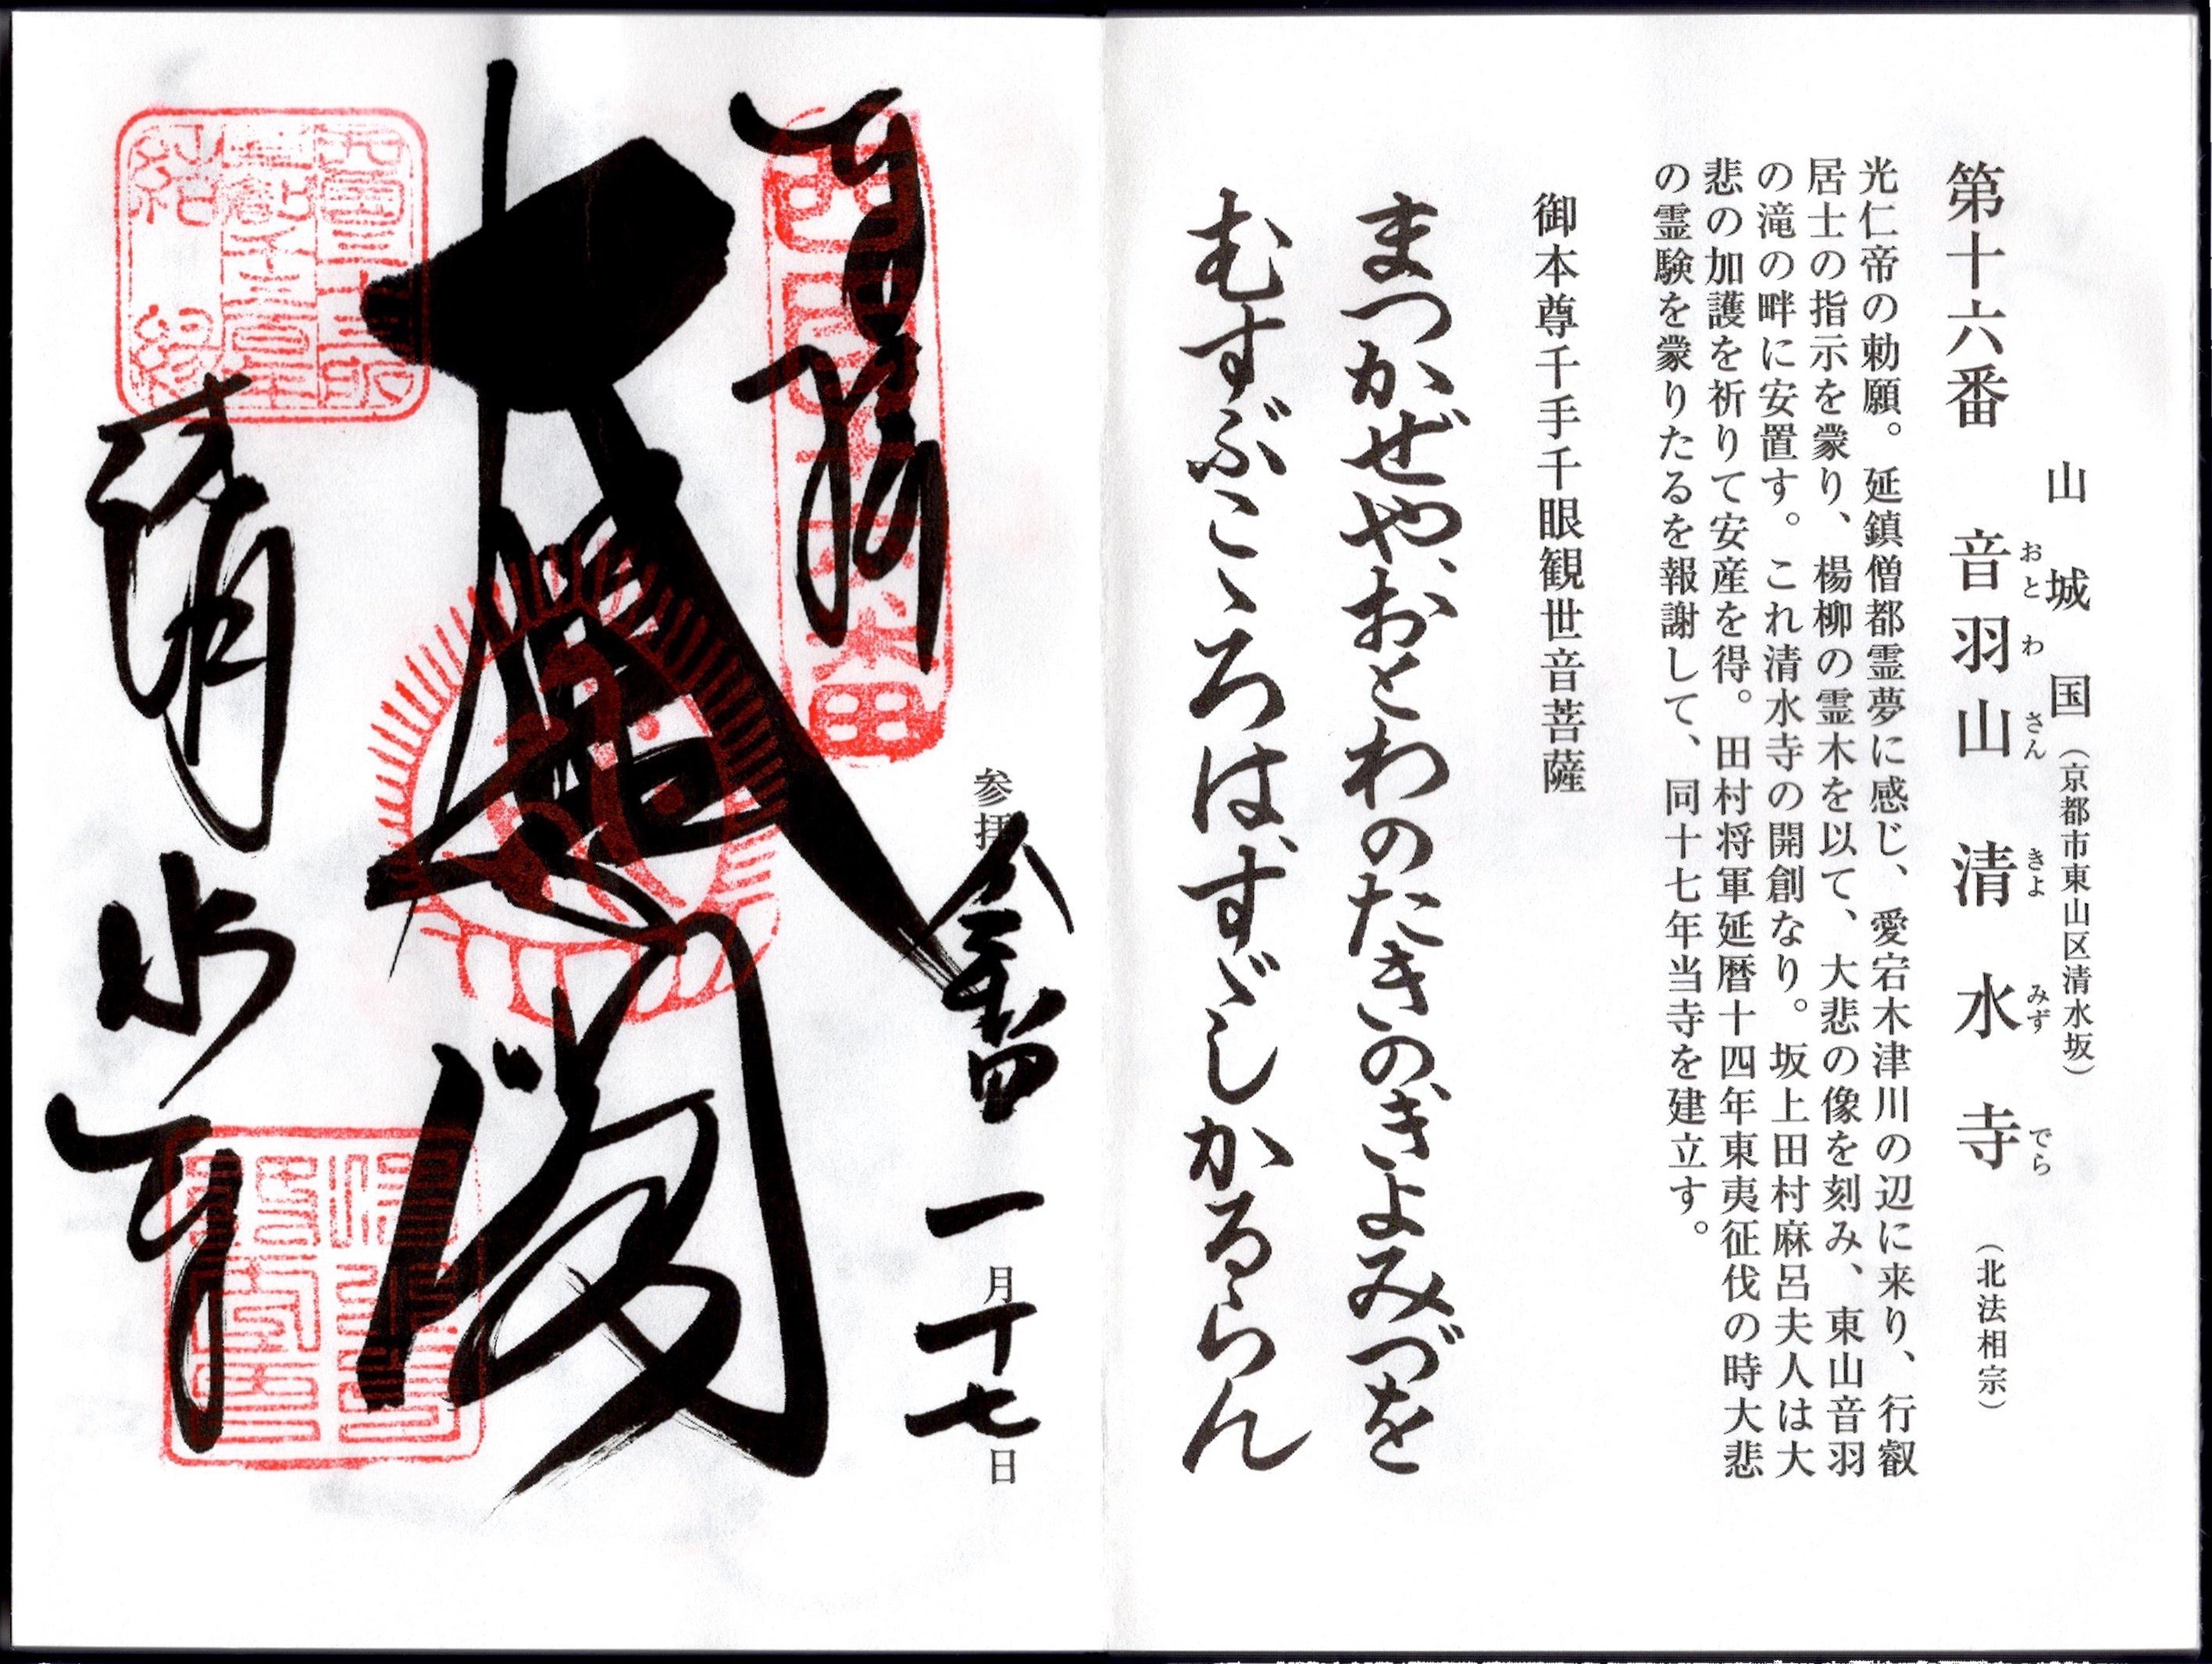 山城国（京都市東山区清水坂）
第十六番　音羽山　清水寺（北法相宗）
おとわさん　きよみずでら
光仁帝の勅願。延鎮僧都霊夢に感じ、愛宕木津川の辺に来り、行叡
居士の指示を蒙り、楊柳の霊木を以て、大悲の像を刻み、東山音羽
の滝の畔に安置す。これ清水寺の開創なり。坂上田村麻呂夫人は大
悲の加護を祈りて安産を得。田村将軍延暦十四年東夷征伐の時大悲
の霊験を蒙りたるを報謝して、同十七年当寺を建立す。
御本尊千手千眼観世音菩薩
まつかぜや、おとわのたきのきよみづを
むすぶこゝろは、すゞしかるらん
参拝 令和四 一月十七日
奉拝
大悲閣
清水寺